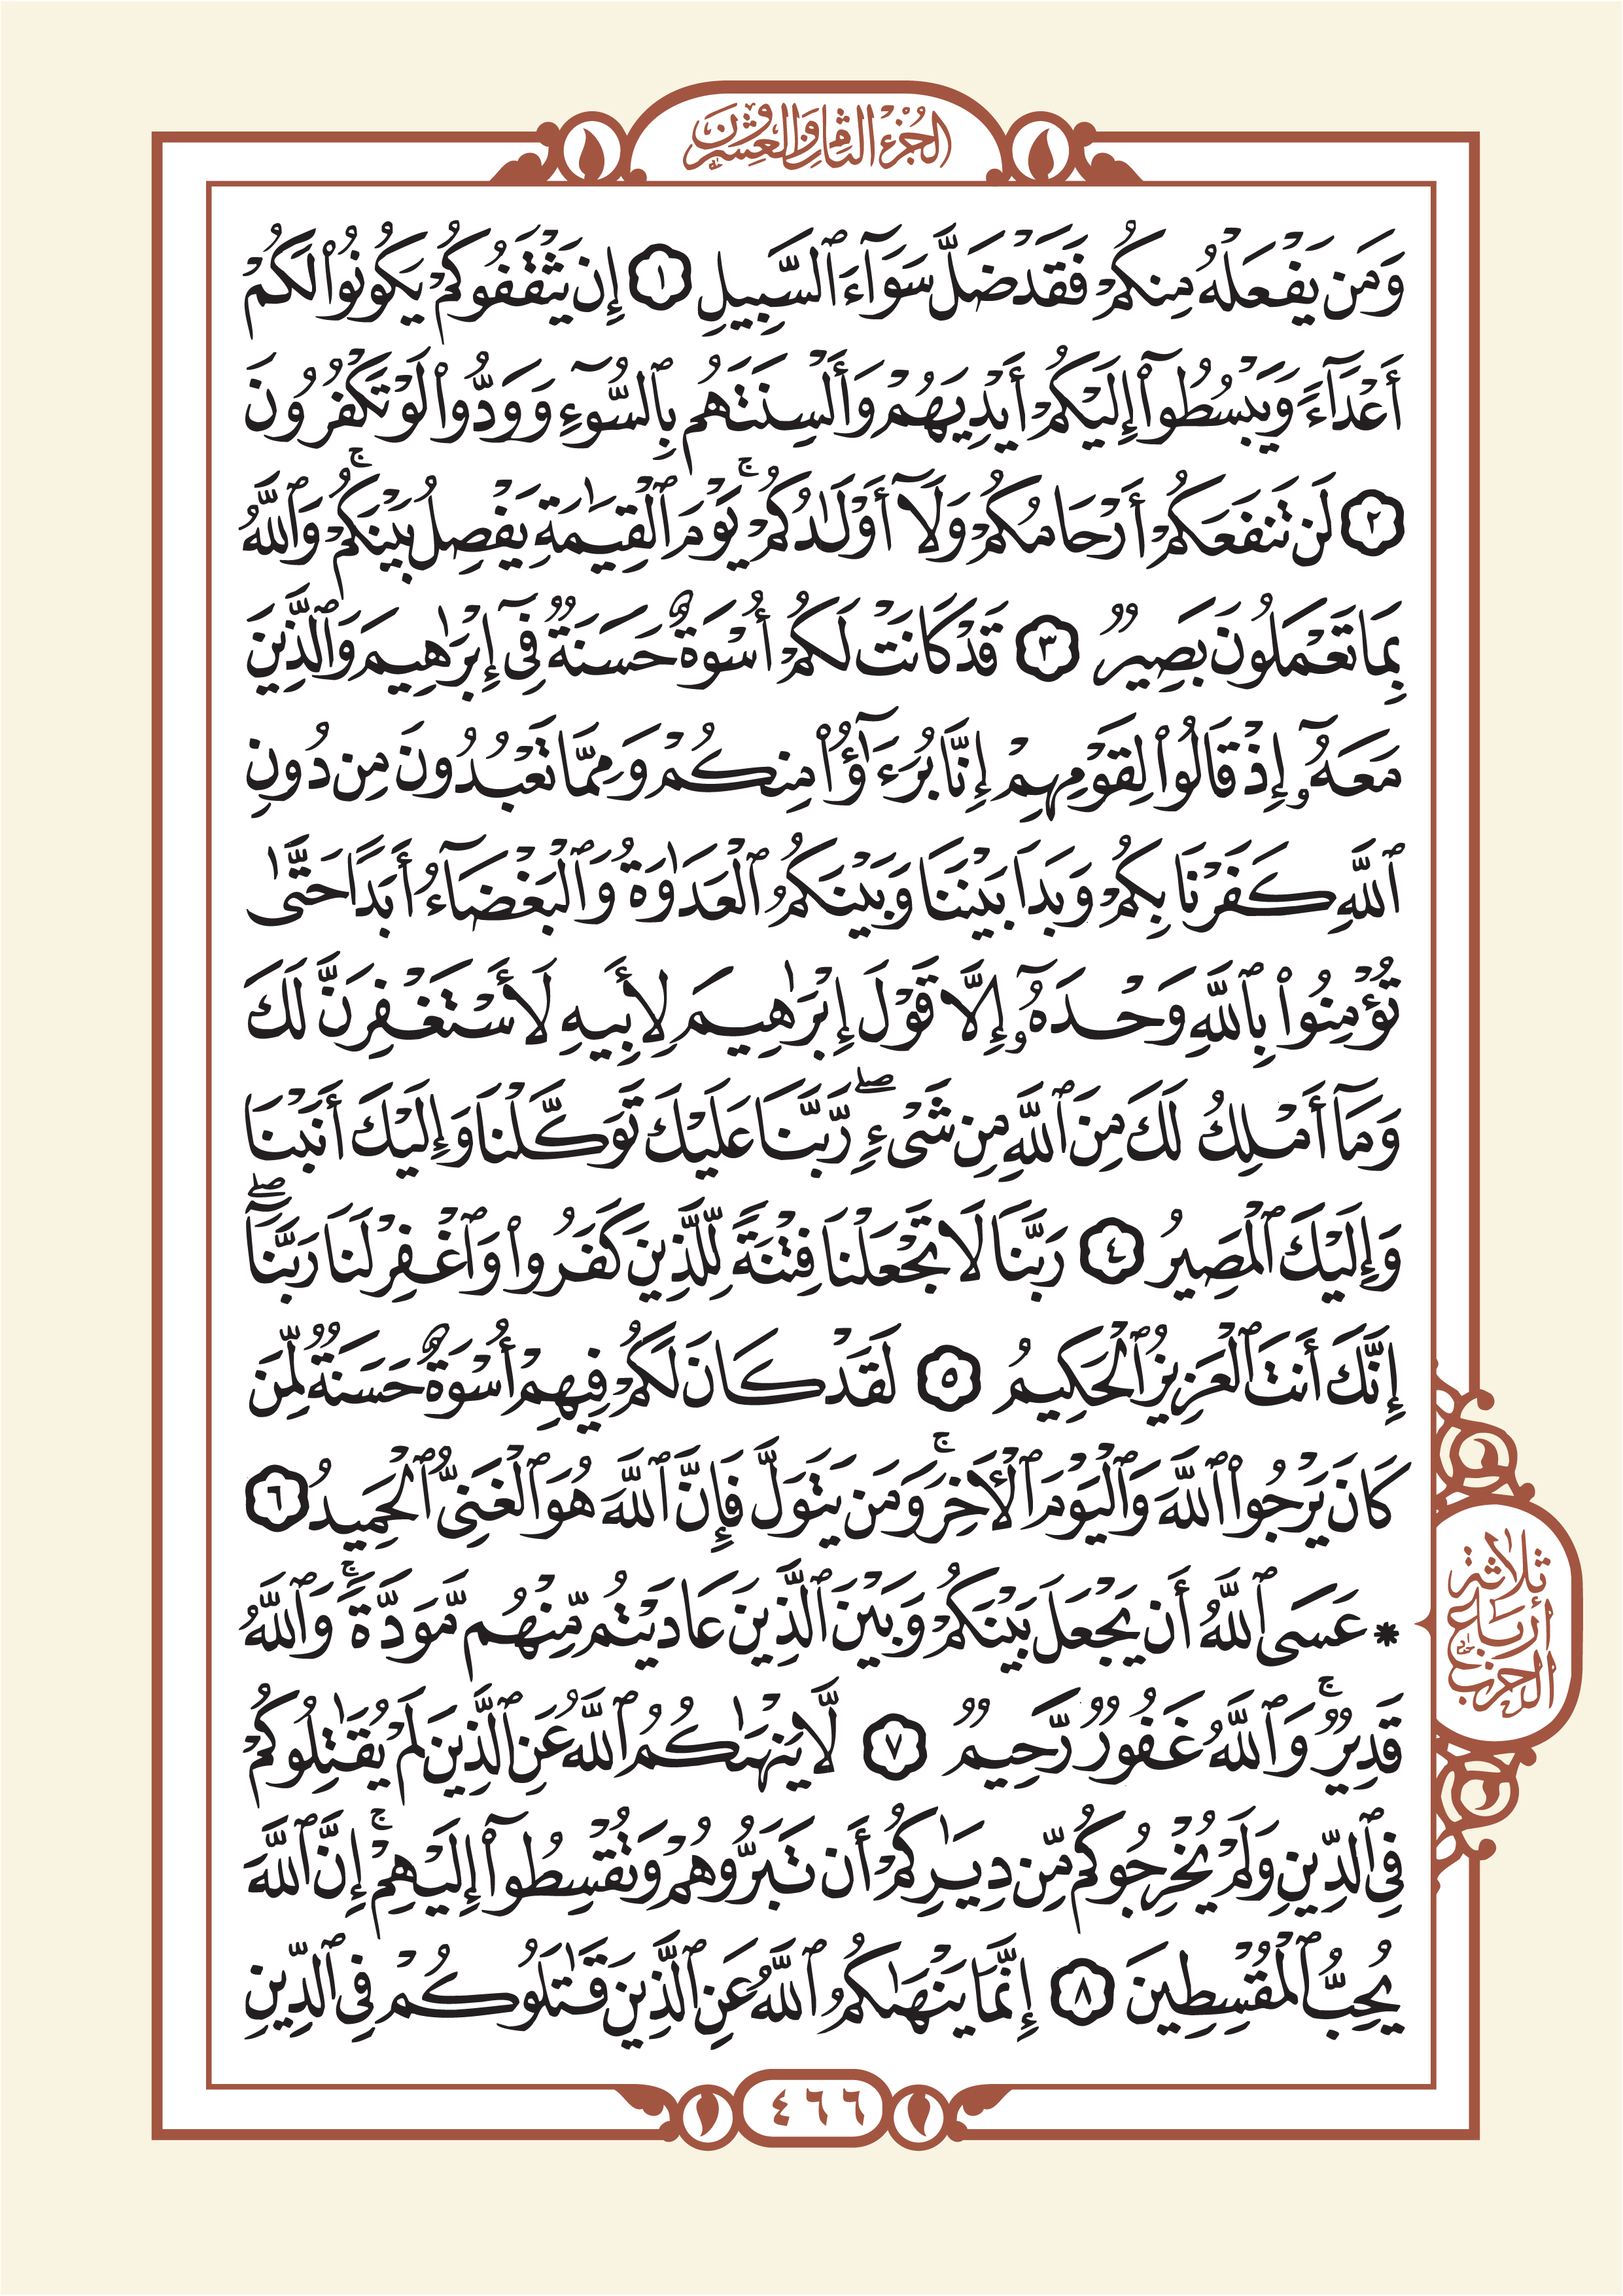 الجزء الثامن والعشرون
وَمَن يَفْعَلْهُ مِنكُمْ فَقَدْ ضَلَّ سَوَآءَ ٱلسَّبِيلِ ١ إِن يَثْقَفُوكُمْ يَكُونُوا۟ لَكُمْ
أَعْدَآءً وَيَبْسُطُوٓا۟ إِلَيْكُمْ أَيْدِيَهُمْ وَأَلْسِنَتَهُم بِٱلسُّوٓءِ وَوَدُّوا۟ لَوْ تَكْفُرُونَ
٢ لَن تَنفَعَكُمْ أَرْحَامُكُمْ وَلَآ أَوْلَٰدُكُمْ ۚ يَوْمَ ٱلْقِيَٰمَةِ يَفْصِلُ بَيْنَكُمْ ۚ وَٱللَّهُ
بِمَا تَعْمَلُونَ بَصِيرٌ ٣ قَدْ كَانَتْ لَكُمْ أُسْوَةٌ حَسَنَةٌ فِىٓ إِبْرَٰهِيمَ وَٱلَّذِينَ
مَعَهُۥٓ إِذْ قَالُوا۟ لِقَوْمِهِمْ إِنَّا بُرَءَٰٓؤُا۟ مِنكُمْ وَمِمَّا تَعْبُدُونَ مِن دُونِ
ٱللَّهِ كَفَرْنَا بِكُمْ وَبَدَا بَيْنَنَا وَبَيْنَكُمُ ٱلْعَدَٰوَةُ وَٱلْبَغْضَآءُ أَبَدًا حَتَّىٰ
تُؤْمِنُوا۟ بِٱللَّهِ وَحْدَهُۥٓ إِلَّا قَوْلَ إِبْرَٰهِيمَ لِأَبِيهِ لَأَسْتَغْفِرَنَّ لَكَ
وَمَآ أَمْلِكُ لَكَ مِنَ ٱللَّهِ مِن شَىْءٍ ۖ رَّبَّنَا عَلَيْكَ تَوَكَّلْنَا وَإِلَيْكَ أَنَبْنَا
وَإِلَيْكَ ٱلْمَصِيرُ ٤ رَبَّنَا لَا تَجْعَلْنَا فِتْنَةً لِّلَّذِينَ كَفَرُوا۟ وَٱغْفِرْ لَنَا رَبَّنَآ ۖ
إِنَّكَ أَنتَ ٱلْعَزِيزُ ٱلْحَكِيمُ ٥ لَقَدْ كَانَ لَكُمْ فِيهِمْ أُسْوَةٌ حَسَنَةٌ لِّمَن
كَانَ يَرْجُوا۟ ٱللَّهَ وَٱلْيَوْمَ ٱلْأَخِرَ ۚ وَمَن يَتَوَلَّ فَإِنَّ ٱللَّهَ هُوَ ٱلْغَنِىُّ ٱلْحَمِيدُ ٦
* عَسَى ٱللَّهُ أَن يَجْعَلَ بَيْنَكُمْ وَبَيْنَ ٱلَّذِينَ عَادَيْتُم مِّنْهُم مَّوَدَّةً ۚ وَٱللَّهُ
قَدِيرٌ ۚ وَٱللَّهُ غَفُورٌ رَّحِيمٌ ٧ لَّا يَنْهَىٰكُمُ ٱللَّهُ عَنِ ٱلَّذِينَ لَمْ يُقَٰتِلُوكُمْ
فِى ٱلدِّينِ وَلَمْ يُخْرِجُوكُم مِّن دِيَٰرِكُمْ أَن تَبَرُّوهُمْ وَتُقْسِطُوٓا۟ إِلَيْهِمْ ۚ إِنَّ ٱللَّهَ
يُحِبُّ ٱلْمُقْسِطِينَ ٨ إِنَّمَا يَنْهَىٰكُمُ ٱللَّهُ عَنِ ٱلَّذِينَ قَٰتَلُوكُمْ فِى ٱلدِّينِ
ثلاثة
أرباع
الحزب
٤٦٦